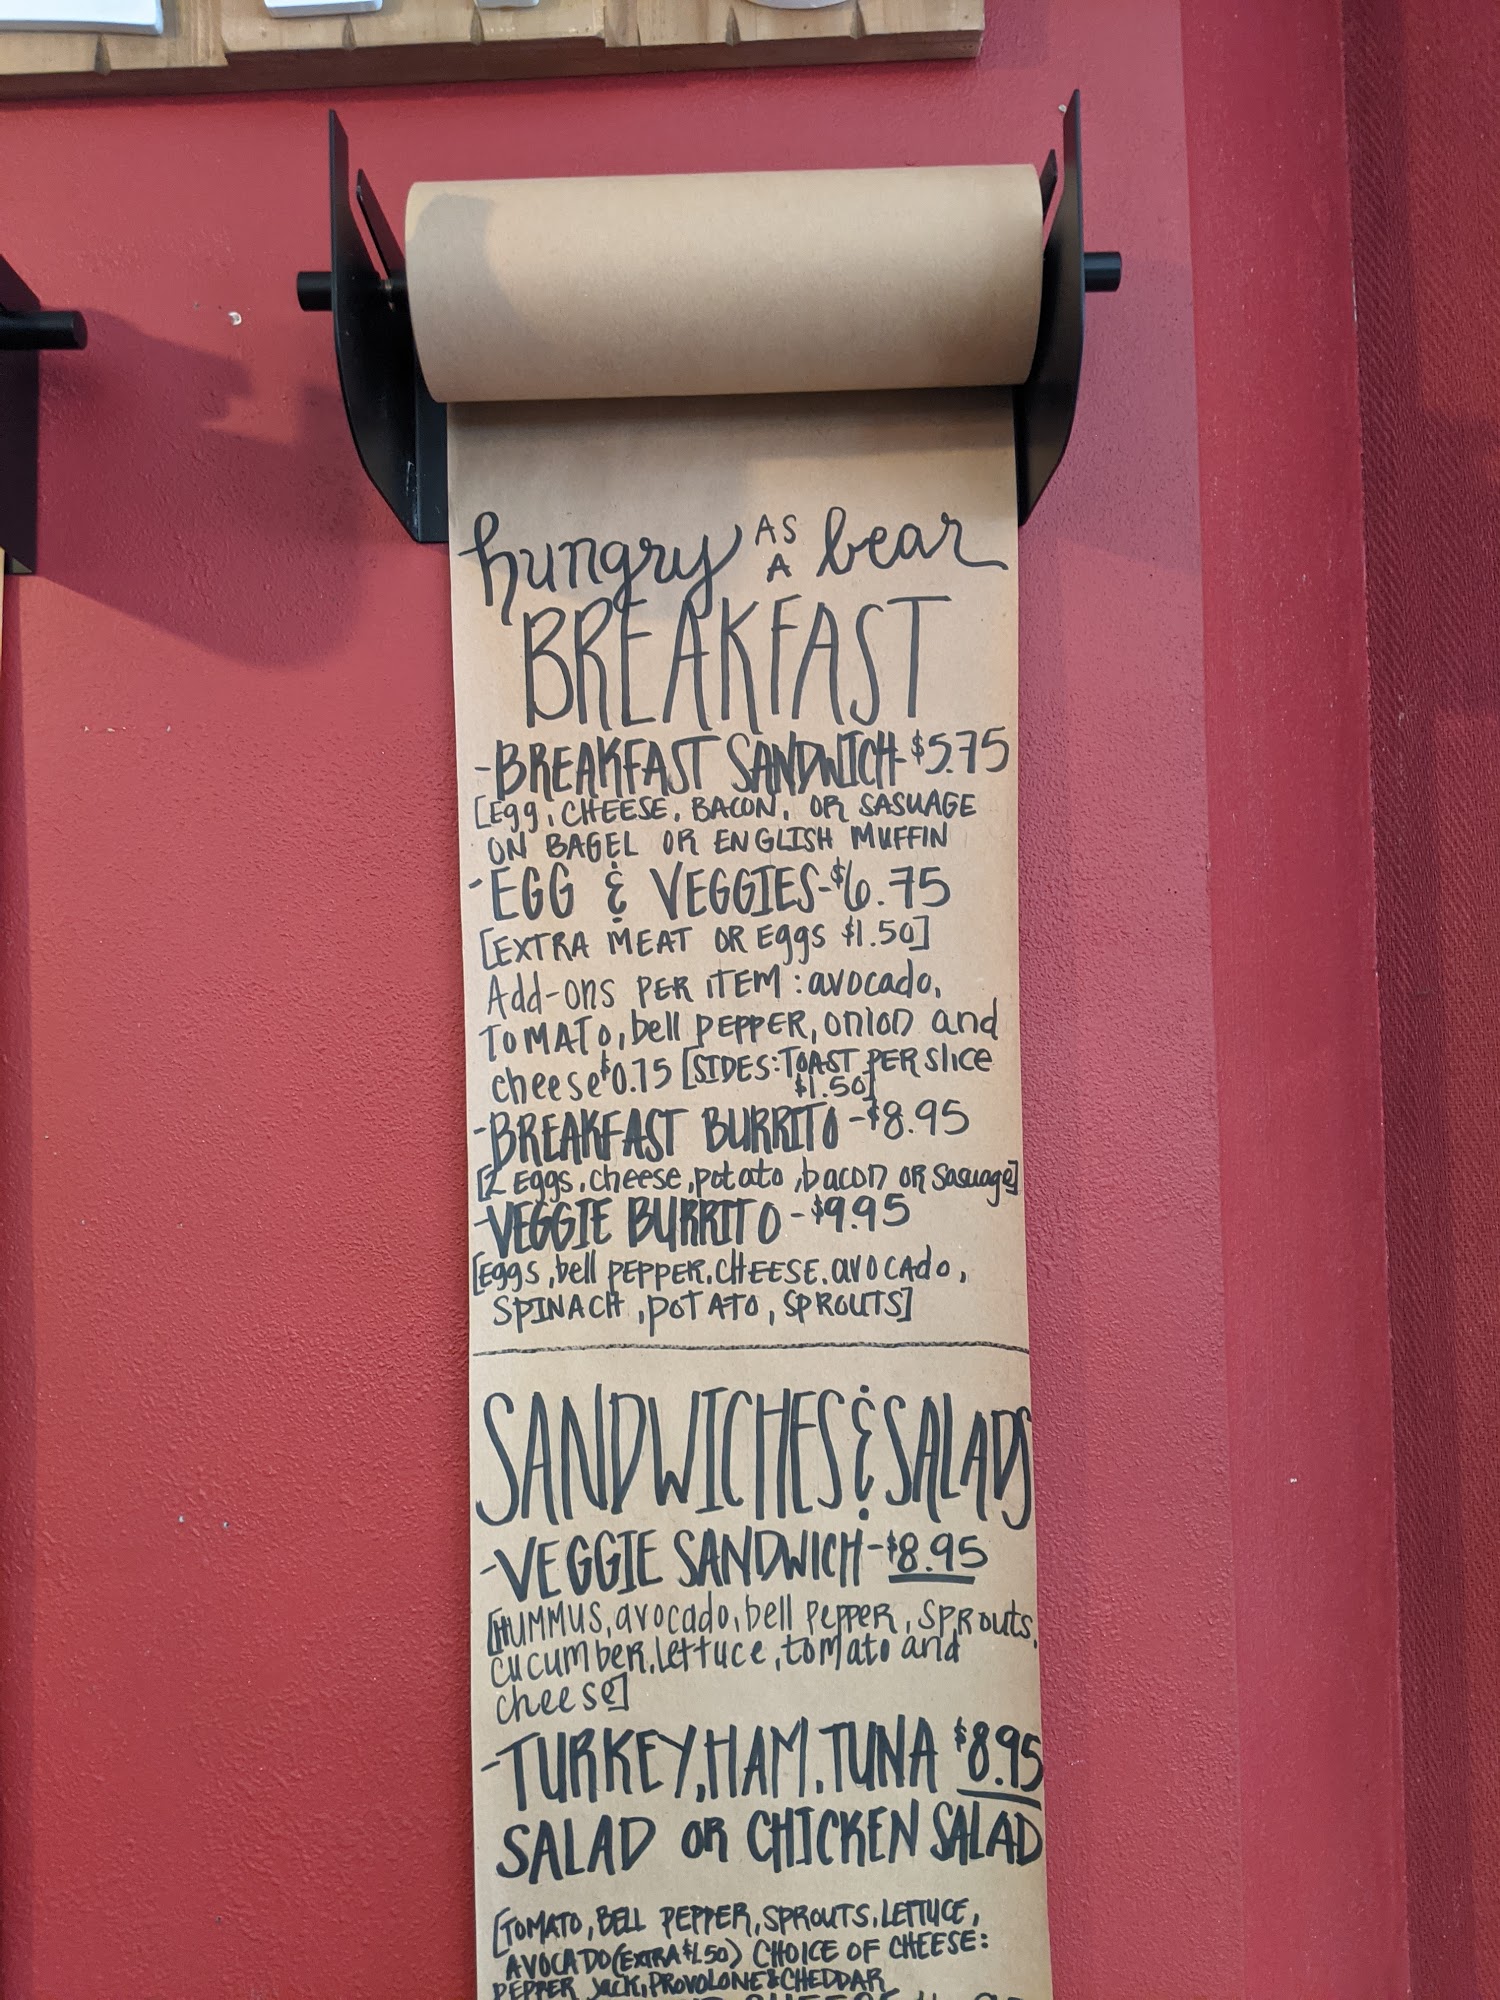 hungry AS A bear
BREAKFAST
-BREAKFAST SANDWICH-$5.75
[Egg, CHEESE, BACON, OR SASUAGE
ON BAGEL OR ENGLISH MUFFIN
-EGG & VEGGIES-$6.75
[EXTRA MEAT OR Eggs $1.50]
Add-ons PER ITEM: avocado,
TOMATO, bell PEPPER, onion and
cheese $0.75 [SIDES: TOAST PER slice
$1.50]
-BREAKFAST BURRITO-$8.95
[2 Eggs, cheese, potato, bacon OR Sasuage]
-VEGGIE BURRITO-$9.95
[Eggs, bell PEPPER, CHEESE, avocado,
SPINACH, POTATO, SPROUTS]
SANDWICHES & SALADS
-VEGGIE SANDWICH-$8.95
[HUMMUS, avocado, bell PEPPER, SPROUTS,
cucumber, lettuce, tomato and
cheese]
-TURKEY, HAM, TUNA $8.95
SALAD OR CHICKEN SALAD
[TOMATO, BELL PEPPER, SPROUTS, LETTUCE,
AVOCADO (EXTRA $1.50) CHOICE OF CHEESE:
PEPPER JACK, PROVOLONE & CHEDDAR